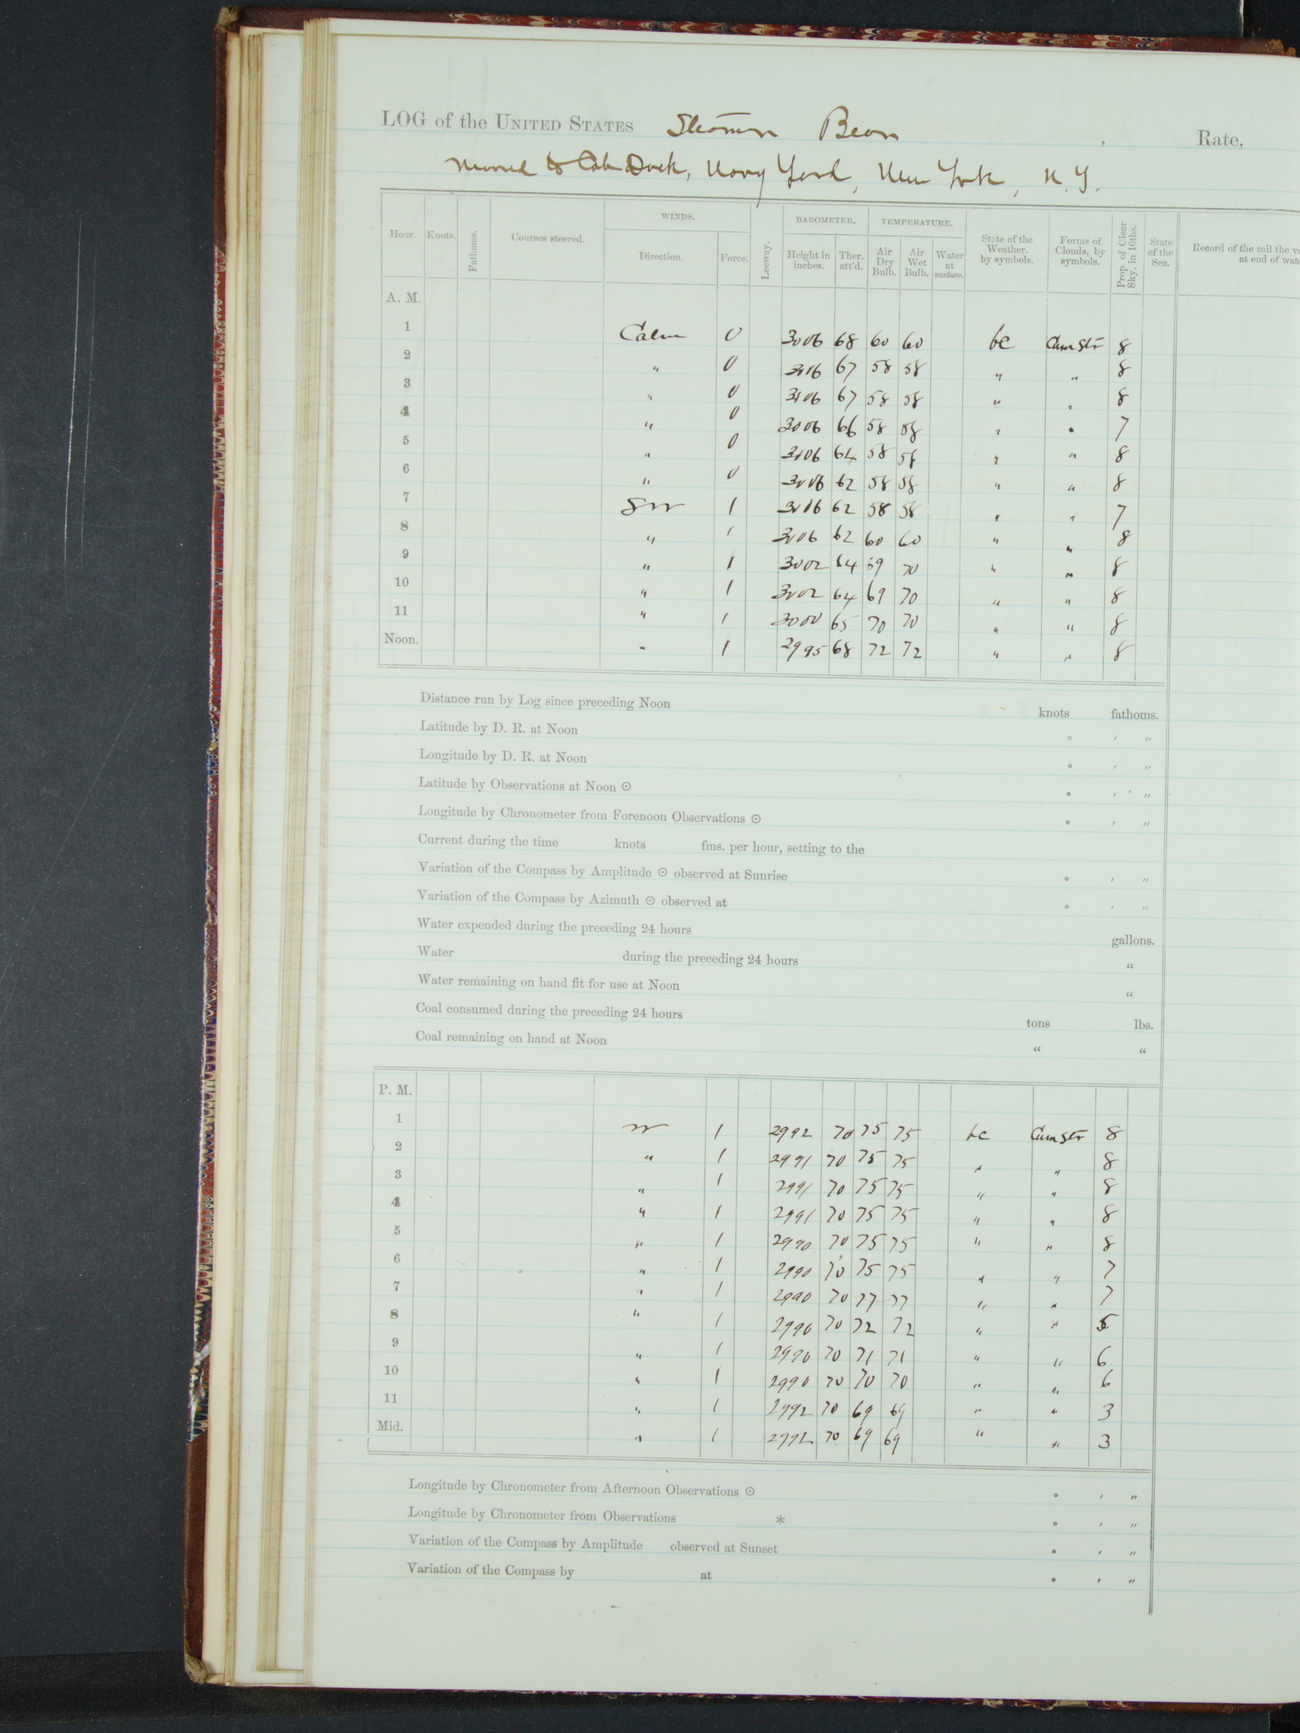 LOG of the UNITED STATES Steamer Bear , Rate,
Moored to Cob Dock, Navy Yard, New York, N.Y.
Hour. Knots. Fathoms. Courses steered. WINDS. Direction. Force. Leeway. BAROMETER. Height in inches. Ther. att'd. TEMPERATURE. Air Dry Bulb. Air Wet Bulb. Water at surface. State of the Weather, by symbols. Forms of Clouds, by symbols. Prop. of Clear Sky, in 10ths. State of the Sea. Record of the sail the at end of
A. M.
1 Calm 0 3006 68 60 60 bc Cum Str 8
2 " 0 3006 67 58 58 " " 8
3 " 0 3006 67 58 58 " " 8
4 " 0 3006 66 58 58 " " 7
5 " 0 3006 64 58 58 " " 8
6 " 0 3006 62 58 58 " " 8
7 SW 1 3006 62 58 58 " " 7
8 " 1 3006 62 60 60 " " 8
9 " 1 3002 64 69 70 " " 8
10 " 1 3002 64 69 70 " " 8
11 " 1 3000 65 70 70 " " 8
Noon. " 1 2995 68 72 72 " " 8
Distance run by Log since preceding Noon knots fathoms.
Latitude by D. R. at Noon ° ′ ″
Longitude by D. R. at Noon ° ′ ″
Latitude by Observations at Noon ☉ ° ′ ″
Longitude by Chronometer from Forenoon Observations ☉ ° ′ ″
Current during the time knots fms. per hour, setting to the
Variation of the Compass by Amplitude ☉ observed at Sunrise ° ′ ″
Variation of the Compass by Azimuth ☉ observed at ° ′ ″
Water expended during the preceding 24 hours gallons.
Water during the preceding 24 hours "
Water remaining on hand fit for use at Noon "
Coal consumed during the preceding 24 hours tons lbs.
Coal remaining on hand at Noon " "
P. M.
1 W 1 2992 70 75 75 bc Cum Str 8
2 " 1 2991 70 75 75 " " 8
3 " 1 2991 70 75 75 " " 8
4 " 1 2991 70 75 75 " " 8
5 " 1 2990 70 75 75 " " 8
6 " 1 2990 70 75 75 " " 7
7 " 1 2990 70 77 77 " " 7
8 " 1 2990 70 72 72 " " 5
9 " 1 2990 70 71 71 " " 6
10 " 1 2990 70 70 70 " " 6
11 " 1 2992 70 69 69 " " 3
Mid. " 1 2992 70 69 69 " " 3
Longitude by Chronometer from Afternoon Observations ☉ ° ′ ″
Longitude by Chronometer from Observations * ° ′ ″
Variation of the Compass by Amplitude observed at Sunset ° ′ ″
Variation of the Compass by at ° ′ ″